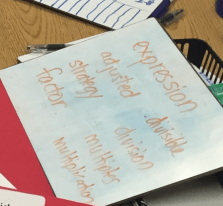 expression
adjusted
strategy
factor
divisible
division
multiples
multiplication